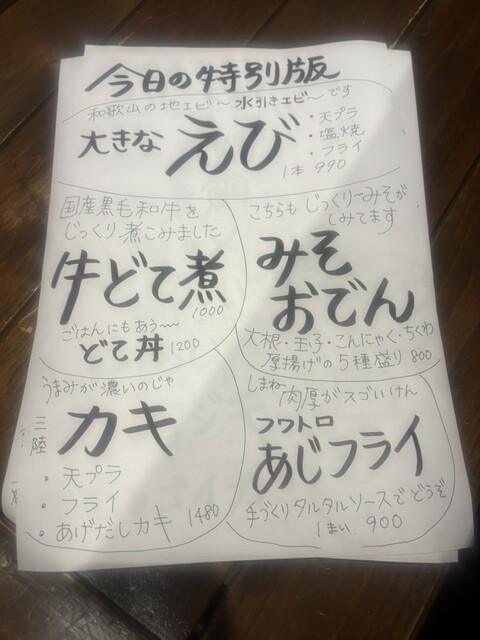 今日の特別版
和歌山の地エビ〜水引きエビ〜です
大きな えび
・天プラ
・塩焼
・フライ
1本 990
国産黒毛和牛を
じっくり煮こみました
牛どて煮
1000
ごはんにもあう〜
どて丼 1200
こちらも じっくりーみそが
しみてます
みそ
おでん
大根・玉子・こんにゃく・ちくわ
厚揚げの5種盛り 800
うまみが濃いのじゃ
三陸
カキ
・天プラ
・フライ
・あげだしカキ 1480
しまね
肉厚がスゴいけん
フワトロ
あじフライ
手づくりタルタルソースでどうぞ
1まい 900